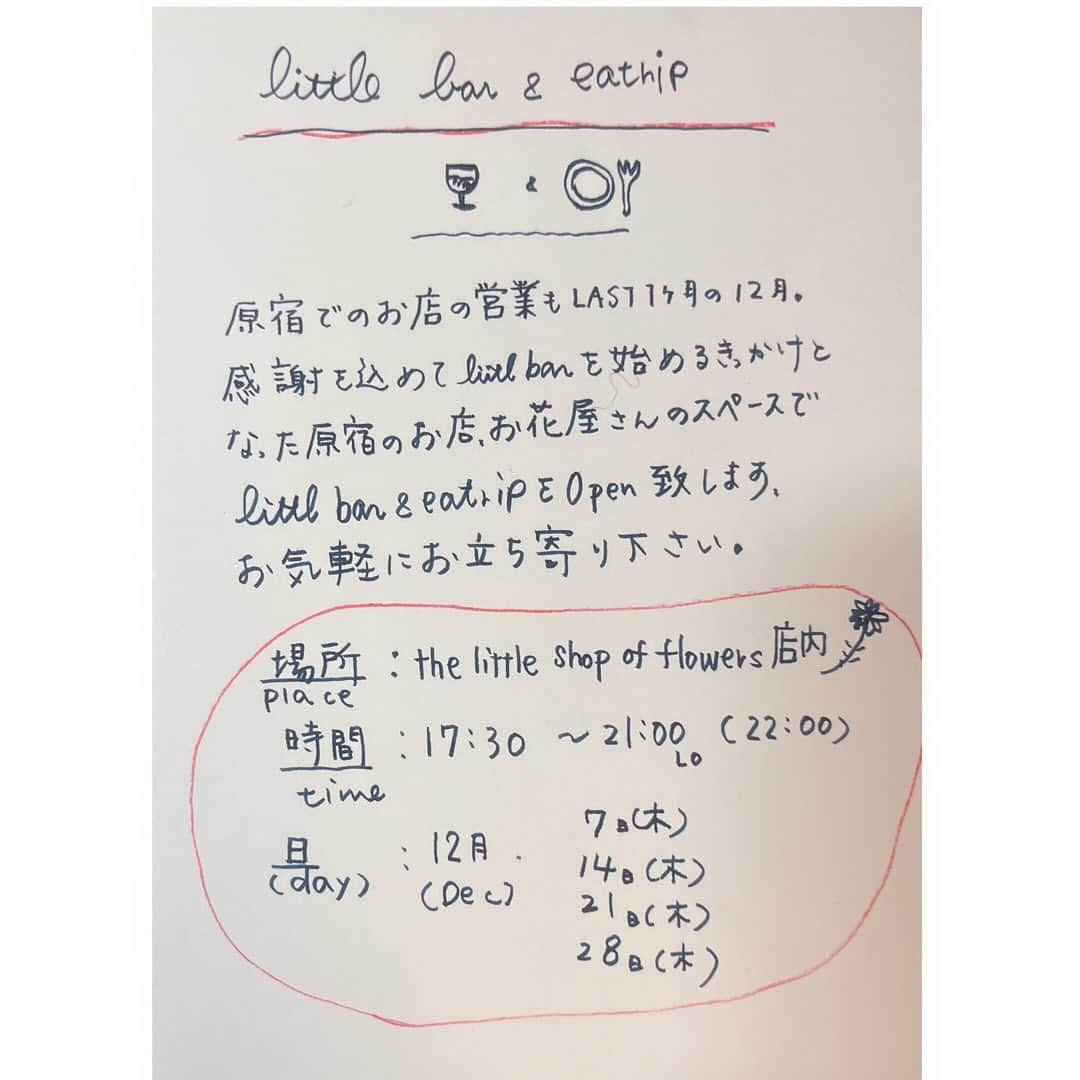 little bar & eatrip
&
原宿でのお店の営業もLAST 1ヶ月の12月。
感謝を込めてlittl barを始めるきっかけと
なった原宿のお店、お花屋さんのスペースで
littl bar & eatripをOpen致します、
お気軽にお立ち寄り下さい。
場所 : the little shop of flowers 店内
place
時間 : 17:30 〜 21:00 (22:00)
LO
time
日 : 12月. 7日(木)
(day) (Dec) 14日(木)
21日(木)
28日(木)